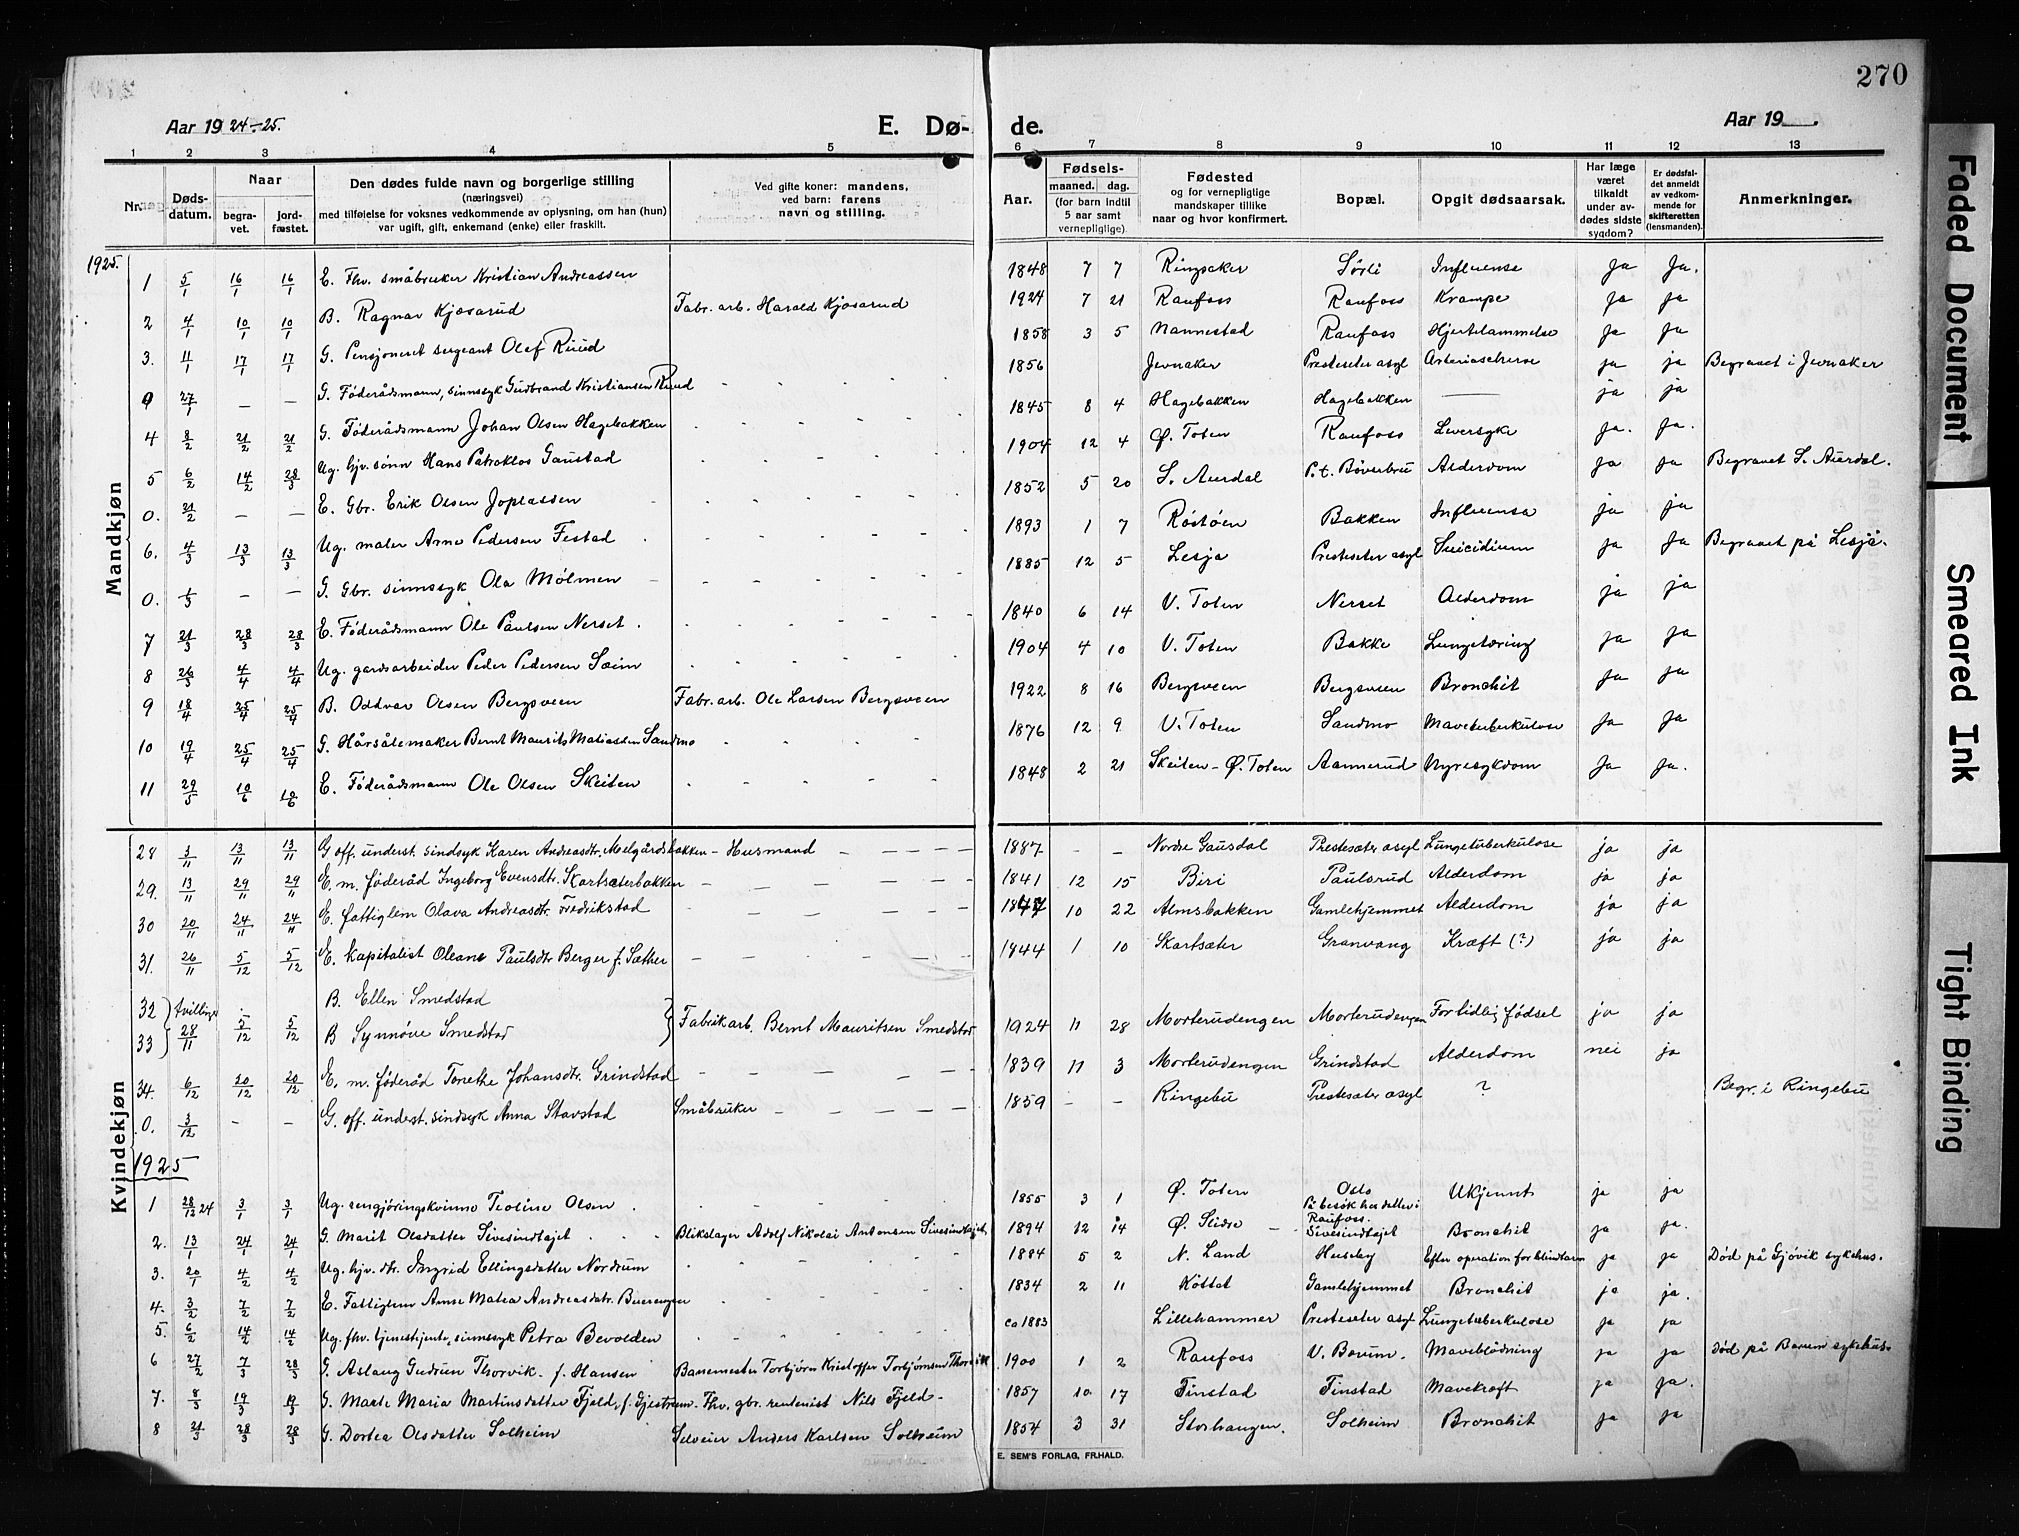 270
Aar 1924-25. E. Dø- de. Aar 19
1 2 3 4 5 6 7 8 9 10 11 12 13
Nr. Døds-datum. Naar begra-vet. jord-fæstet. Den dødes fulde navn og borgerlige stilling (næringsvei) med tilføielse for voksnes vedkommende av oplysning, om han (hun) var ugift, gift, enkemand (enke) eller fraskilt. Ved gifte koner: mandens, ved barn: farens navn og stilling. Aar. Fødsels- maaned. dag. (for barn indtil 5 aar samt vernepligtige). Fødested og for vernepligtige mandskaper tillike naar og hvor konfirmert. Bopæl. Opgit dødsaarsak. Har læge været tilkaldt under av-dødes sidste sygdom? Er dødsfal-det anmeldt av vedkom-mende for skifteretten (lensmanden). Anmerkninger.
Mandkjøn
1925.
1 5/1 16/1 16/1 E. Fhv. småbruker Kristian Andreassen 1848 7 7 Ringsaker Sørli Influensa Ja Ja.
2 4/1 10/1 10/1 B. Ragnar Kjøsarud Fabr. arb. Harald Kjøsarud 1924 7 21 Raufoss Raufoss Krampe Ja Ja
3. 11/1 17/1 17/1 G. Pensjoneret sergeant Olaf Ruud 1858 3 5 Nannestad Raufoss Hjertelammelse Ja Ja
0 27/1 — — G. Føderådsmann, sinnssyk Gudbrand Kristiansen Ruud 1856 Jevnaker Prestseter asyl Arteriosclerose ja ja Begravet i Jevnaker
4 8/2 21/2 21/2 G. Føderådsmann Johan Olsen Hagebakken 1845 8 4 Hagebakken Hagebakken — ja ja
5 6/2 14/2 28/3 Ug. hjv. sønn Hans Patroklos Gaustad 1904 12 4 Ø. Toten Raufoss Leversyke Ja. Ja.
0. 21/2 — — E. Gbr. Erik Olsen Joplassen 1852 5 20 S. Aurdal P.t. Bøverbru Alderdom Ja Ja Begravet S. Aurdal.
6. 4/3 13/3 13/3 Ug. maler Arne Pedersen Festad 1893 1 7 Røstøen Bakken Influensa ja ja
0. 1/3 — — G. Gbr. sinnssyk Ola Mølmen 1885 12 5 Lesja Presteseter asyl Suicidium Ja Ja Begravet på Lesja.
7 21/3 28/3 28/3 E. Føderådsmann Ole Paulsen Nerset. 1840 6 14 V. Toten Nerset Alderdom ja ja
8 26/3 4/4 4/4 Ug. gardsarbeider Peder Pedersen Sæim 1904 4 10 V. Toten Bakke Lungetæring Ja Ja
9 18/4 25/4 25/4 B. Oddvar Olsen Bergsveen Fabr. arb. Ole Larsen Bergsveen 1922 8 16 Bergsveen Bergsveen Bronchit Ja Ja
10 19/4 25/4 25/4 G. Hårsålemaker Bernt Maurits Matiassen Sandmo 1876 12 9 V. Toten Sandmo Mavetuberkulose Ja Ja
11 29/5 10/6 10/6 E. Føderådsmann Ole Olsen Skeiten 1848 2 21 Skeiten - Ø. Toten Aannerud Nyresykdom Ja Ja.
Kvindekjøn
28 3/11 13/11 13/11 G. off. underst. sindsyk Karen Andreasdtr. Melgårdsbakken - Husmand 1887 - - Nordre Gausdal Prestesæter asyl Lungetuberkulose ja ja
29. 13/11 29/11 29/11 E. m. føderåd Ingeborg Evensdtr. Skartsæterbakken 1841 12 15 Biri Paulsrud Alderdom ja ja
30 20/11 24/11 24/11 E. fattiglem Olava Andreasdtr. Fredrikstad 1847 10 22 Almsbakken Gamlehjemmet Alderdom ja ja
31. 26/11 5/12 5/12 E. Kapitalist Oleane Paulsdtr Berger f. Sæther 1844 1 10 Skartsæter Granvang Kræft (?) ja ja
32 tvillinger B. Ellen Smedstad
33 28/11 5/12 5/12 B Synnøve Smedstad Fabrikarb. Bernt Mauritsen Smedstad 1924 11 28 Morterudengen Morterudengen For tidlig fødsel ja ja
34. 6/12 20/12 20/12 E. m. føderåd Tonethe Johansdtr. Grindstad 1839 11 3 Morterudengen Grindstad Alderdom nei ja
0. 3/12 - - G. off. underst. sindsyk Anna Stavstad Småbruker 1859 - - Ringebu Prestesæter asyl ? Begr. i Ringebu
1925
1 28/12 24 3/1 3/1 Ug. rengjøringskvinne Teoline Olsen 1855 3 1 Ø. Toten Oslo På besøk hos datter i Raufoss. Ukjennt ja ja
2. 13/1 24/1 24/1 G. Marit Olsdatter Sivesindhøjet Blikslager Adolf Nikolai Antonsen Sivesindhøjet 1894 12 14 Ø. Slidre Sivesindtøjet Bronchit ja ja.
3. 20/1 4/2 4/2 Ug. hjv. dtr. Ingrid Ellingsdatter Nordrum 1884 5 2 N. Land Huseby Efter operation for blindtarm ja ja Død på Gjøvik sykehus.
4. 3/2 7/2 7/2 E. Fattiglem Anne Matea Andreasdtr. Buerengen 1834 2 11 Køltet Gamlehjemmet Bronchit ja ja.
5. 6/2 14/2 14/2 Ug. fhv. tjenestjente, sinnssyk Petra Bevolden ca 1883 Lillehammer Presteseter asyl Lungetuberkulose ja ja
6 27/2 7/3 28/3 G. Aslaug Gudrun Thorvik f. Hansen Banemester Torbjørn Kristoffer Torbjørnsen Thorvik 1900 1 2 Raufoss V. Bærum. Maveblødning ja ja Død på Bærum sykehus.
7. 8/3 19/3 19/3 G. Marte Maria Martinsdatter Fjeld, f. Gjestrum Fhv. gbr. rentenist Nils Fjeld 1857 10 17 Finstad Finstad Mavekræft ja ja.
8 21/3 28/3 28/3 G. Dortea Olsdatter Solheim Selveier Anders Karlsen Solheim 1854 3 31 Storhaugen. Solheim Bronchit Ja Ja
E. SEM'S FORLAG, FR.HALD.
Faded Document
Smeared Ink
Tight Binding